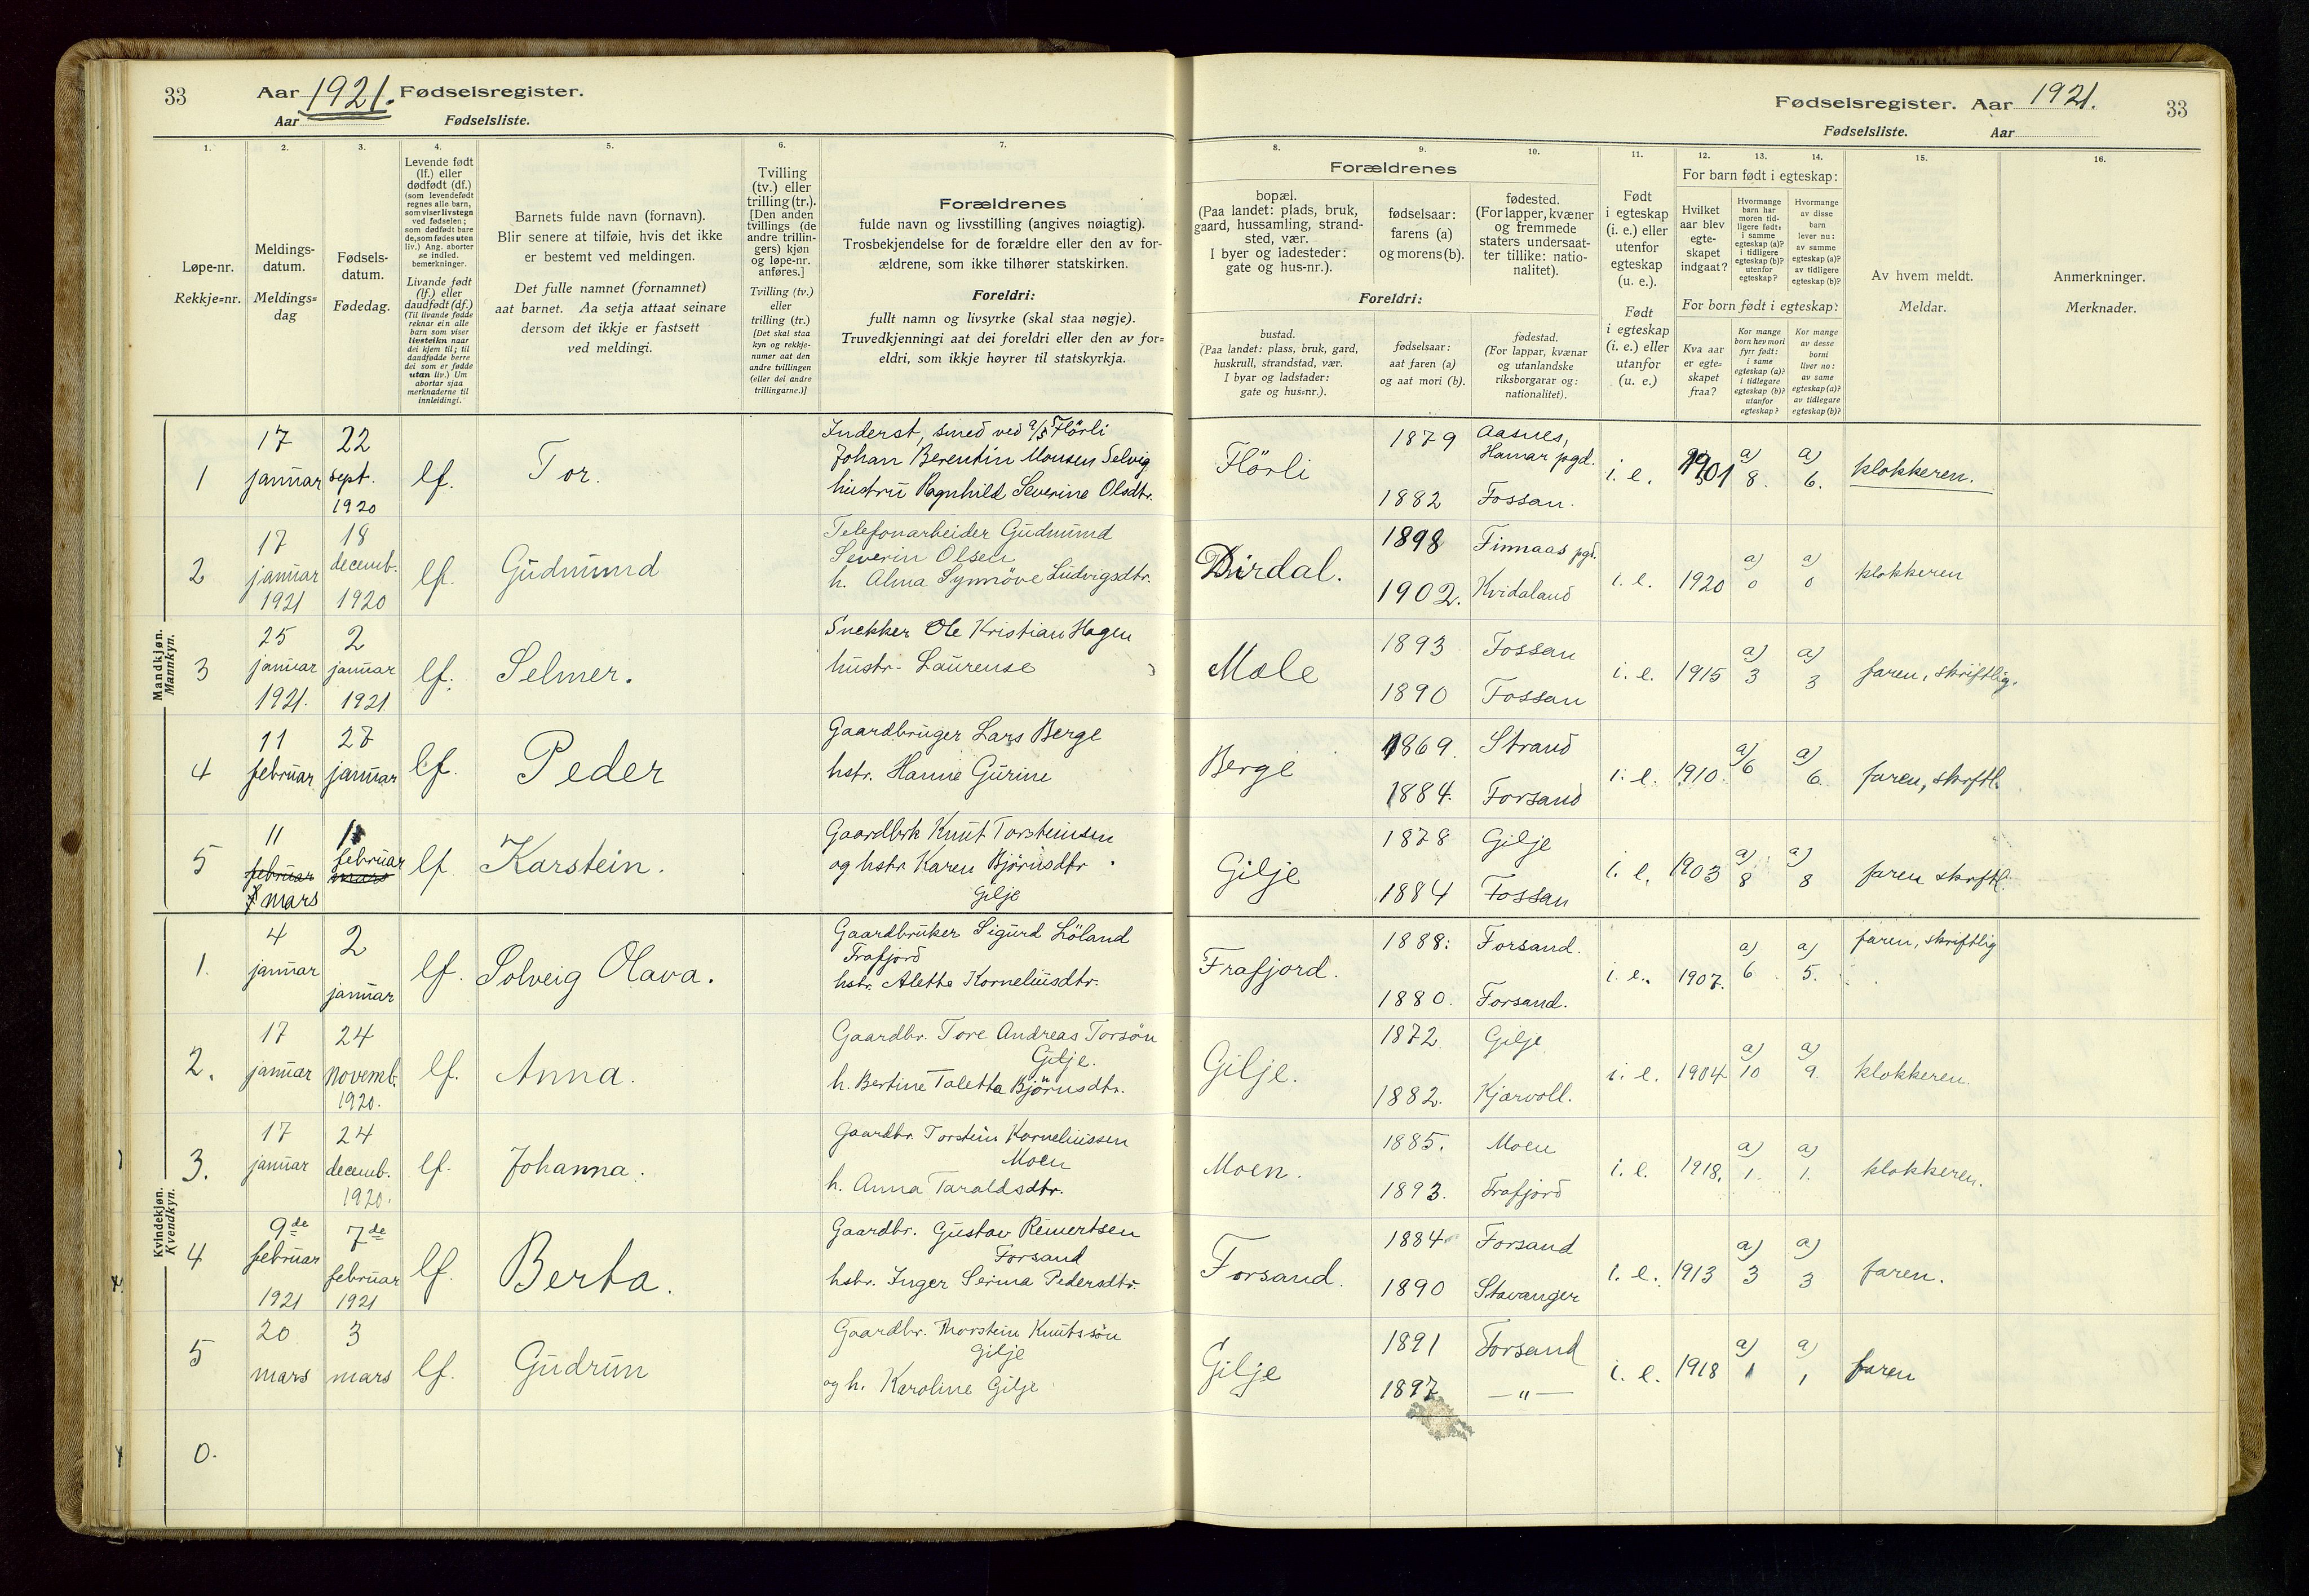 33 Aar 1921. Fødselsregister.
Aar Fødselsliste.
Fødselsregister. Aar 1921. 33
Fødselsliste. Aar
1. 2. 3. 4. 5. 6. 7.
Løpe-nr.
Rekkje=nr.
Meldings-
datum.
Meldings=
dag
Fødsels-
datum.
Fødedag.
Levende født
(lf.) eller
dødfødt (df.)
(som levendefødt
regnes alle barn,
som viser livstegn
ved fødselen;
som dødfødt bare
de, som fødes uten
liv.) Ang. aborter
se indled.
bemerkninger.
Livande født
(lf.) eller
daudfødt (df.)
(Til livande fødde
reknar ein alle
barn som viser
livsteikn naar
dei kjem til; til
daudfødde berre
dei som er fødde
utan liv.) Um
abortar sjaa
merknaderne til
innleidingi.
Barnets fulde navn (fornavn).
Blir senere at tilføie, hvis det ikke
er bestemt ved meldingen.
Det fulle namnet (fornamnet)
aat barnet. Aa setja attaat seinare
dersom det ikkje er fastsett
ved meldingi.
Tvilling
(tv.) eller
trilling (tr.).
[Den anden
tvillings (de
andre trillin-
gers) kjøn
og løpe-nr.
anføres.]
Tvilling (tv.)
eller
trilling (tr.)
[Det skal staa
kyn og rekkje-
numer aat den
andre tvillingen
(eller dei andre
trillingarne.)]
Forældrenes
fulde navn og livsstilling (angives nøiagtig).
Trosbekjendelse for de forældre eller den av for-
ældrene, som ikke tilhører statskirken.
Foreldri:
fullt namn og livsyrke (skal staa nøgje).
Truvedkjenningi aat dei foreldri eller den av for=
eldri, som ikkje høyrer til statskyrkja.
8. 9. 10. 11. 12. 13. 14. 15. 16.
Forældrenes
bopæl.
(Paa landet: plads, bruk,
gaard, hussamling, strand-
sted, vær.
I byer og ladesteder:
gate og hus-nr.).
fødselsaar:
farens (a)
og morens (b).
fødested.
(For lapper, kvæner
og fremmede
staters undersaat-
ter tillike: natio-
nalitet).
Foreldri:
bustad.
(Paa landet: plass, bruk, gard,
huskrull, strandstad, vær.
I byar og ladstader:
gate og hus=nr.).
fødselsaar:
aat faren (a)
og aat mori (b).
fødestad.
(For lappar, kvænar
og utanlandske
riksborgarar og:
nationalitet).
Født
i egteskap
(i. e.) eller
utenfor
egteskap
(u. e.).
Født
i egteskap
(i. e.) eller
utanfor
(u. e.)
For barn født i egteskap:
Hvilket
aar blev
egte-
skapet
indgaat?
Hvormange
barn har
moren tid-
ligere født:
i samme
egteskap (a)?
i tidligere
egteskap (b)?
utenfor
egteskap?
Hvormange
av disse
barn
lever nu:
av samme
egteskap (a)?
av tidligere
egteskap (b)?
For born født i egteskap:
Kva aar
er egte-
skapet
fraa?
Kor mange
born hev mori
fyrr født:
i same
egteskap (a)?
i tidlegare
egteskap (b)?
utanfor
egteskap?
Kor mange
av desse
borni
liver no:
av same
egteskap (a)?
av tidlegare
egteskap (b)?
Av hvem meldt.
Meldar.
Anmerkninger.
Merknader.
Mandkjøn.
Mankyn.
1 17 januar 22 sept. 1920 lf. Tor.
Inderst, smed ved a/s Flörli
Johan Berentin Monsen Selvig
hustru Ragnhild Severine Olsdtr.
Flörli 1879 Aasnes, Hamar pgd.
1882 Fossan.
i. e. 1901 a) 8. a) 6. klokkeren.
2 17 januar 1921 18 decemb. 1920 lf. Gudmund
Telefonarbeider Gudmund
Severin Olsen
h. Alma Synnöve Ludvigsdtr.
Dirdal. 1898 Finnaas pgd.
1902. Kvidaland
i. e. 1920 a) 0 a) 0 klokkeren
3 25 januar 1921. 2 januar 1921 lf. Selmer.
Snekker Ole Kristian Hagen
hustr. Laurense
Mæle 1893 Fossan
1890 Fossan
i. e. 1915 a) 3 a) 3 faren, skriftlig.
4 11 februar 27 januar lf. Peder
Gaardbruger Lars Berge
hstr. Hanne Gurine
Berge 1869 Strand
1884. Forsand
i. e. 1910. a) 6 a) 6. faren, skriftl.
5 11 februar mars 1 februar mars lf Karstein.
Gaardbrk Knut Torsteinsen
og hstr. Karen Bjørnsdtr
Gilje
Gilje 1878 Gilje
1884 Fossan
i. e. 1903 a) 8 a) 8 faren skriftl.
Kvindekjøn.
Kvendkyn.
1. 4 januar 2 januar lf. Solveig Olava.
Gaardbruker Sigurd Löland
Frafjord
hstr. Alette Korneliusdtr.
Frafjord. 1888. Forsand.
1880. Forsand.
i. e. 1907. a) 6 a) 5. faren, skriftlig
2. 17 januar 24 novemb. 1920. lf. Anna.
Gaardbr. Tore Andreas Torsön
Gilje.
h. Bertine Taletta Björnsdtr.
Gilje. 1872 Gilje
1882. Kjærvoll.
i. e. 1904 a) 10 a) 9. klokkeren.
3. 17 januar 24 decemb. 1920. lf. Johanna.
Gaardbr. Torstein Korneliussen
Moen
h. Anna Taraldsdtr.
Moen. 1885. Moen
1893. Frafjord
i. e. 1918. a) 1. a) 1. klokkeren.
4 9de februar 1921 7de februar 1921 lf. Berta.
Gaardbr. Gustav Reinertsen
Forsand
hstr. Inger Serina Pedersdtr.
Forsand. 1884 Forsand
1890 Stavanger
i. e. 1913 a) 3 a) 3 faren.
5 20 mars 3 mars lf. Gudrun
Gaardbr. Thorstein Knutssön
Gilje
og h. Karoline Gilje
Gilje 1891 Forsand
1897 —"—
i. e. 1918 a) 1 a) 1 faren
0.